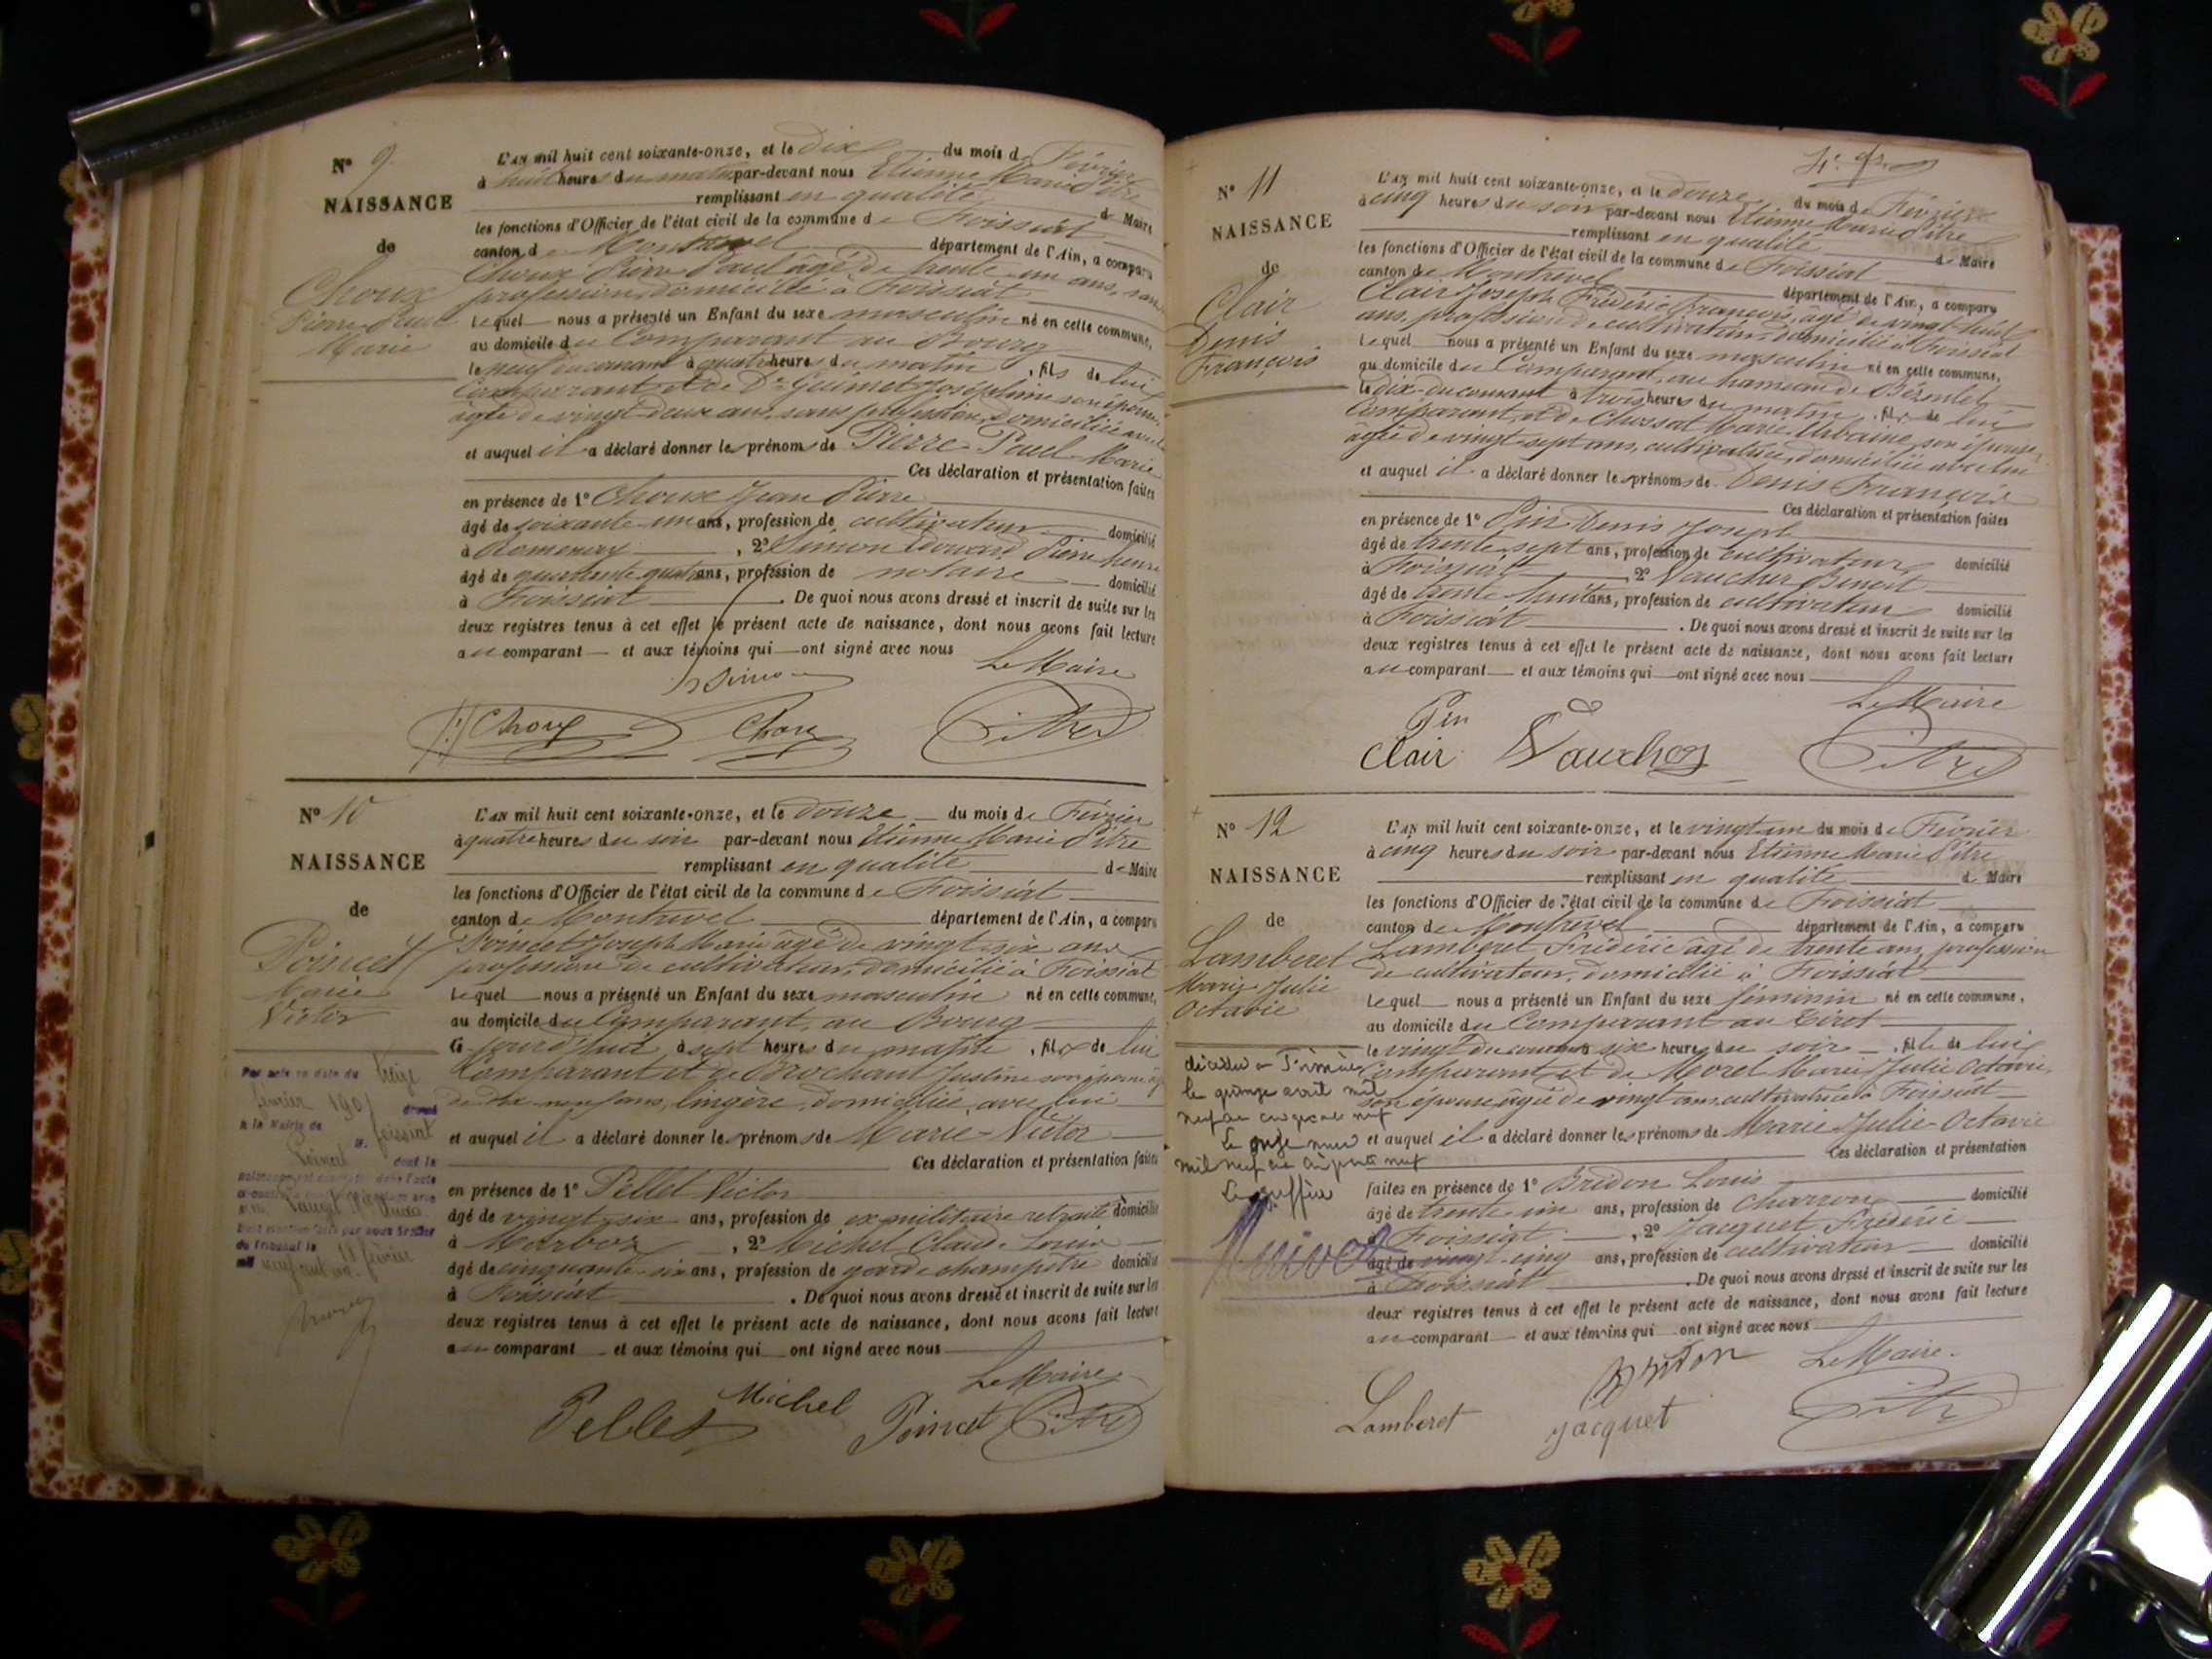 N° 9
NAISSANCE
de
Choux
Pierre Paul
Marie
L'AN mil huit cent soixante-onze, et le dix du mois de Février
à huit heures du matin par-devant nous Etienne Marie Pitre
remplissant en qualité de Maire
les fonctions d'Officier de l'état civil de la commune de Foissiat
canton de Montrevel département de l'Ain, a comparu
Choux Pierre Paul âgé de trente-un ans, sans
profession, domicilié à Foissiat
lequel nous a présenté un Enfant du sexe masculin né en cette commune,
au domicile du Comparant au Bourg
le neuf du courant à quatre heures du matin, fils de lui
Comparant et de De Guimet Joséphine son épouse
âgée de vingt-deux ans, sans profession, domiciliée avec lui
et auquel il a déclaré donner les prénoms de Pierre-Paul-Marie
Ces déclaration et présentation faites
en présence de 1° Choux Jean Pierre
âgé de soixante-un ans, profession de cultivateur domicilié
à Romenay, 2° Simon Edouard Pierre henri
âgé de quarante quatre ans, profession de notaire domicilié
à Foissiat. De quoi nous avons dressé et inscrit de suite sur les
deux registres tenus à cet effet le présent acte de naissance, dont nous avons fait lecture
au comparant et aux témoins qui ont signé avec nous
Le Maire
Simon
Choux Choux Pitre
N° 10
NAISSANCE
de
Poincet
Marie
Victor
L'AN mil huit cent soixante-onze, et le douze du mois de Février
à quatre heures du soir par-devant nous Etienne Marie Pitre
remplissant en qualité de Maire
les fonctions d'Officier de l'état civil de la commune de Foissiat
canton de Montrevel département de l'Ain, a comparu
Poincet Joseph Marie âgé de vingt-six ans
profession de cultivateur, domicilié à Foissiat
lequel nous a présenté un Enfant du sexe masculin né en cette commune,
au domicile du Comparant, au Bourg
ce jourd'hui à sept heures du matin, fils de lui
Comparant et de Brochant Justine son épouse âgée
de dix-neuf ans, lingère, domiciliée avec lui
et auquel il a déclaré donner les prénoms de Marie-Victor
Ces déclaration et présentation faites
en présence de 1° Pellet Victor
âgé de vingt-six ans, profession de ex militaire retraité domicilié
à Marboz, 2° Michel Claude Louis
âgé de cinquante-six ans, profession de garde champêtre domicilié
à Foissiat. De quoi nous avons dressé et inscrit de suite sur les
deux registres tenus à cet effet le présent acte de naissance, dont nous avons fait lecture
au comparant et aux témoins qui ont signé avec nous
Le Maire
Pellet Michel Poincet Pitre
Par acte en date du treize
février 1901 dressé
à la Mairie de Foissiat
Poincet dont la
naissance est constatée dans l'acte
du tribunal le
mil neuf cent un février
4e
N° 11
NAISSANCE
de
Clair
Denis
François
L'AN mil huit cent soixante-onze, et le douze du mois de Février
à cinq heures du soir par-devant nous Etienne Marie Pitre
remplissant en qualité de Maire
les fonctions d'Officier de l'état civil de la commune de Foissiat
canton de Montrevel département de l'Ain, a comparu
Clair Joseph Frédéric François, âgé de vingt-huit
ans, profession de cultivateur, domicilié à Foissiat
lequel nous a présenté un Enfant du sexe masculin né en cette commune,
au domicile du Comparant, au hameau de
le dix du courant à trois heures du matin, fils de lui
Comparant, et de Chossat Marie Urbaine, son épouse,
âgée de vingt-sept ans, cultivatrice, domiciliée avec lui
et auquel il a déclaré donner les prénoms de Denis François
Ces déclaration et présentation faites
en présence de 1° Pin Denis Joseph
âgé de trente-sept ans, profession de cultivateur domicilié
à Foissiat, 2° Vaucher Benoit
âgé de trente-huit ans, profession de cultivateur domicilié
à Foissiat. De quoi nous avons dressé et inscrit de suite sur les
deux registres tenus à cet effet le présent acte de naissance, dont nous avons fait lecture
au comparant et aux témoins qui ont signé avec nous
Le Maire
Pin
Clair Vaucher Pitre
N° 12
NAISSANCE
de
Lamberet
Marie Julie
Octavie
L'AN mil huit cent soixante-onze, et le vingt un du mois de Février
à cinq heures du soir par-devant nous Etienne Marie Pitre
remplissant en qualité de Maire
les fonctions d'Officier de l'état civil de la commune de Foissiat
canton de Montrevel département de l'Ain, a comparu
Lamberet Frédéric âgé de trente ans, profession
de cultivateur, domicilié à Foissiat
lequel nous a présenté un Enfant du sexe féminin né en cette commune,
au domicile du Comparant au Tirot
le vingt du courant six heures du soir, fille de lui
Comparant et de Morel Marie Julie Octavie,
son épouse, âgée de vingt ans, cultivatrice à Foissiat
et auquel il a déclaré donner les prénoms de Marie-Julie-Octavie
Ces déclaration et présentation
faites en présence de 1° Bridon Louis
âgé de trente un ans, profession de charron domicilié
à Foissiat, 2° Jacquet Frédéric
âgé de vingt-cinq ans, profession de cultivateur domicilié
à Foissiat. De quoi nous avons dressé et inscrit de suite sur les
deux registres tenus à cet effet le présent acte de naissance, dont nous avons fait lecture
au comparant et aux témoins qui ont signé avec nous
Le Maire.
Lamberet Bridon Jacquet Pitre
décédée à
le quinze avril mil
neuf cent cinquante neuf
Le onze mai
mil neuf cent cinquante neuf
Le greffier